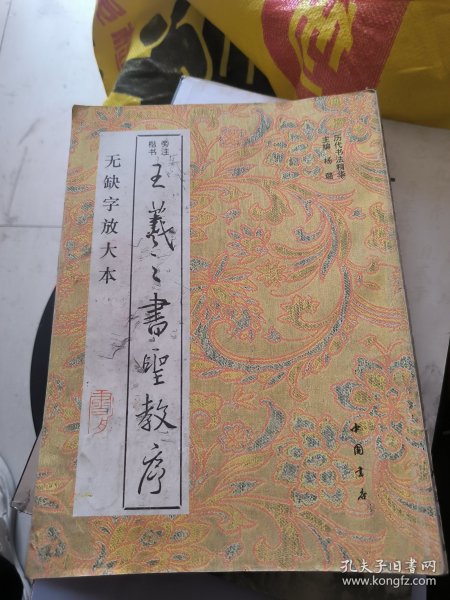 历代书法精萃
主编 杨璐
楷书
旁注
王羲之書聖教序
无缺字放大本
中国书店
孔夫子旧书网
www.kongfz.com